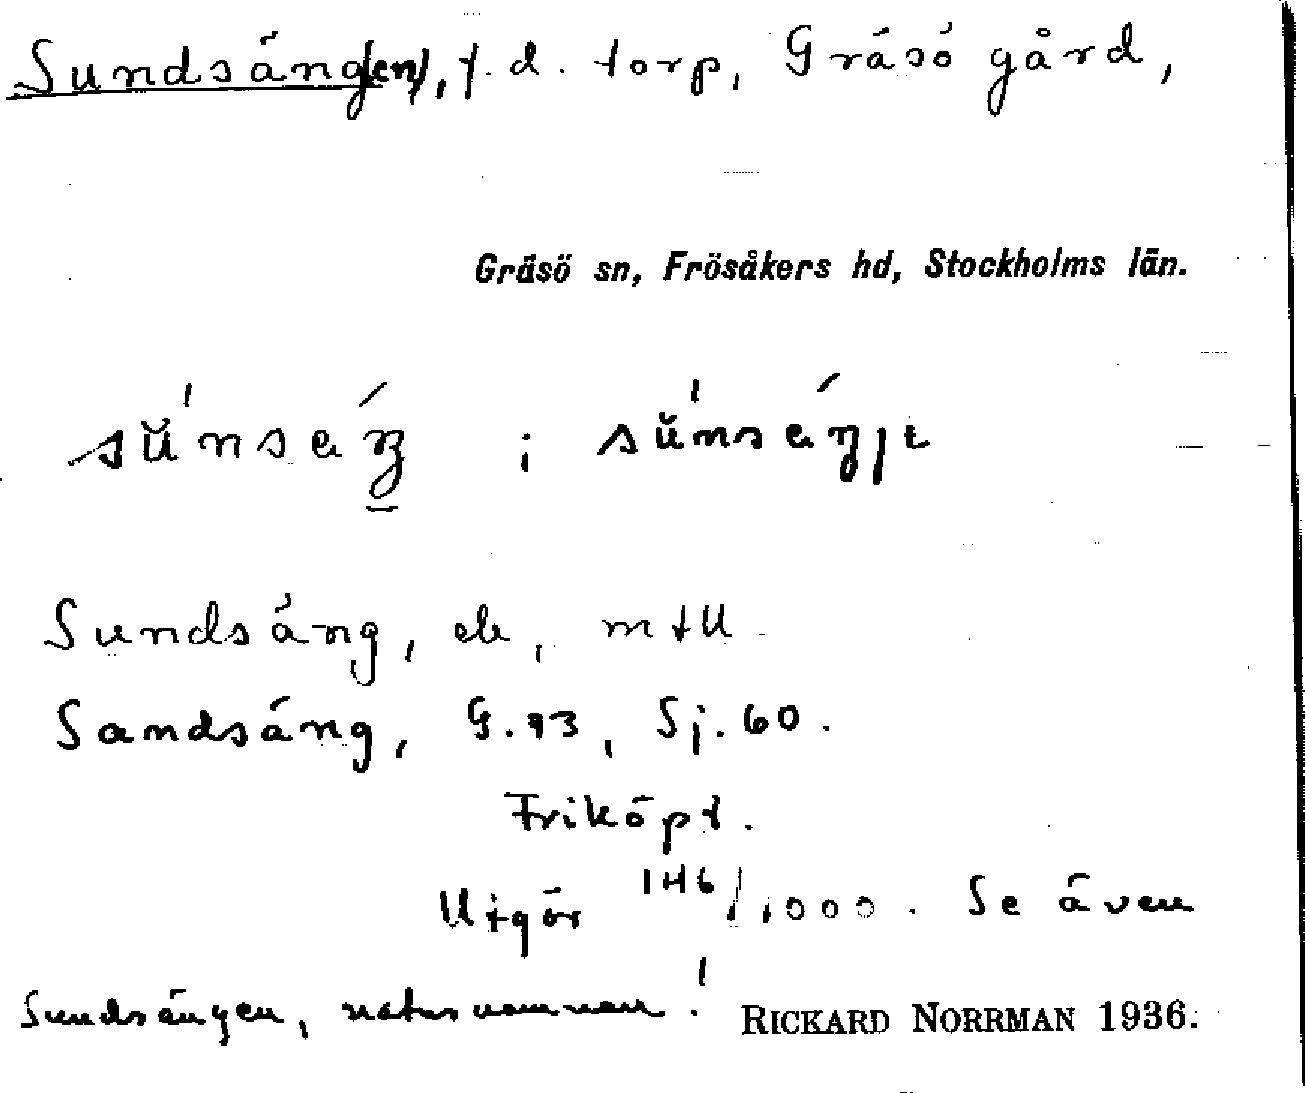 Sundsäng(en), f.d. torp, Gräsö gård,
Gräsö sn, Frösåkers hd, Stockholms län.
i
Sundsäng, mtU
Sandsäng, G. 93, Sj. 60.
Friköpt.
Utgör 146/1000. Se även
Sundsängen, naturnamnen!
RICKARD NORRMAN 1936.